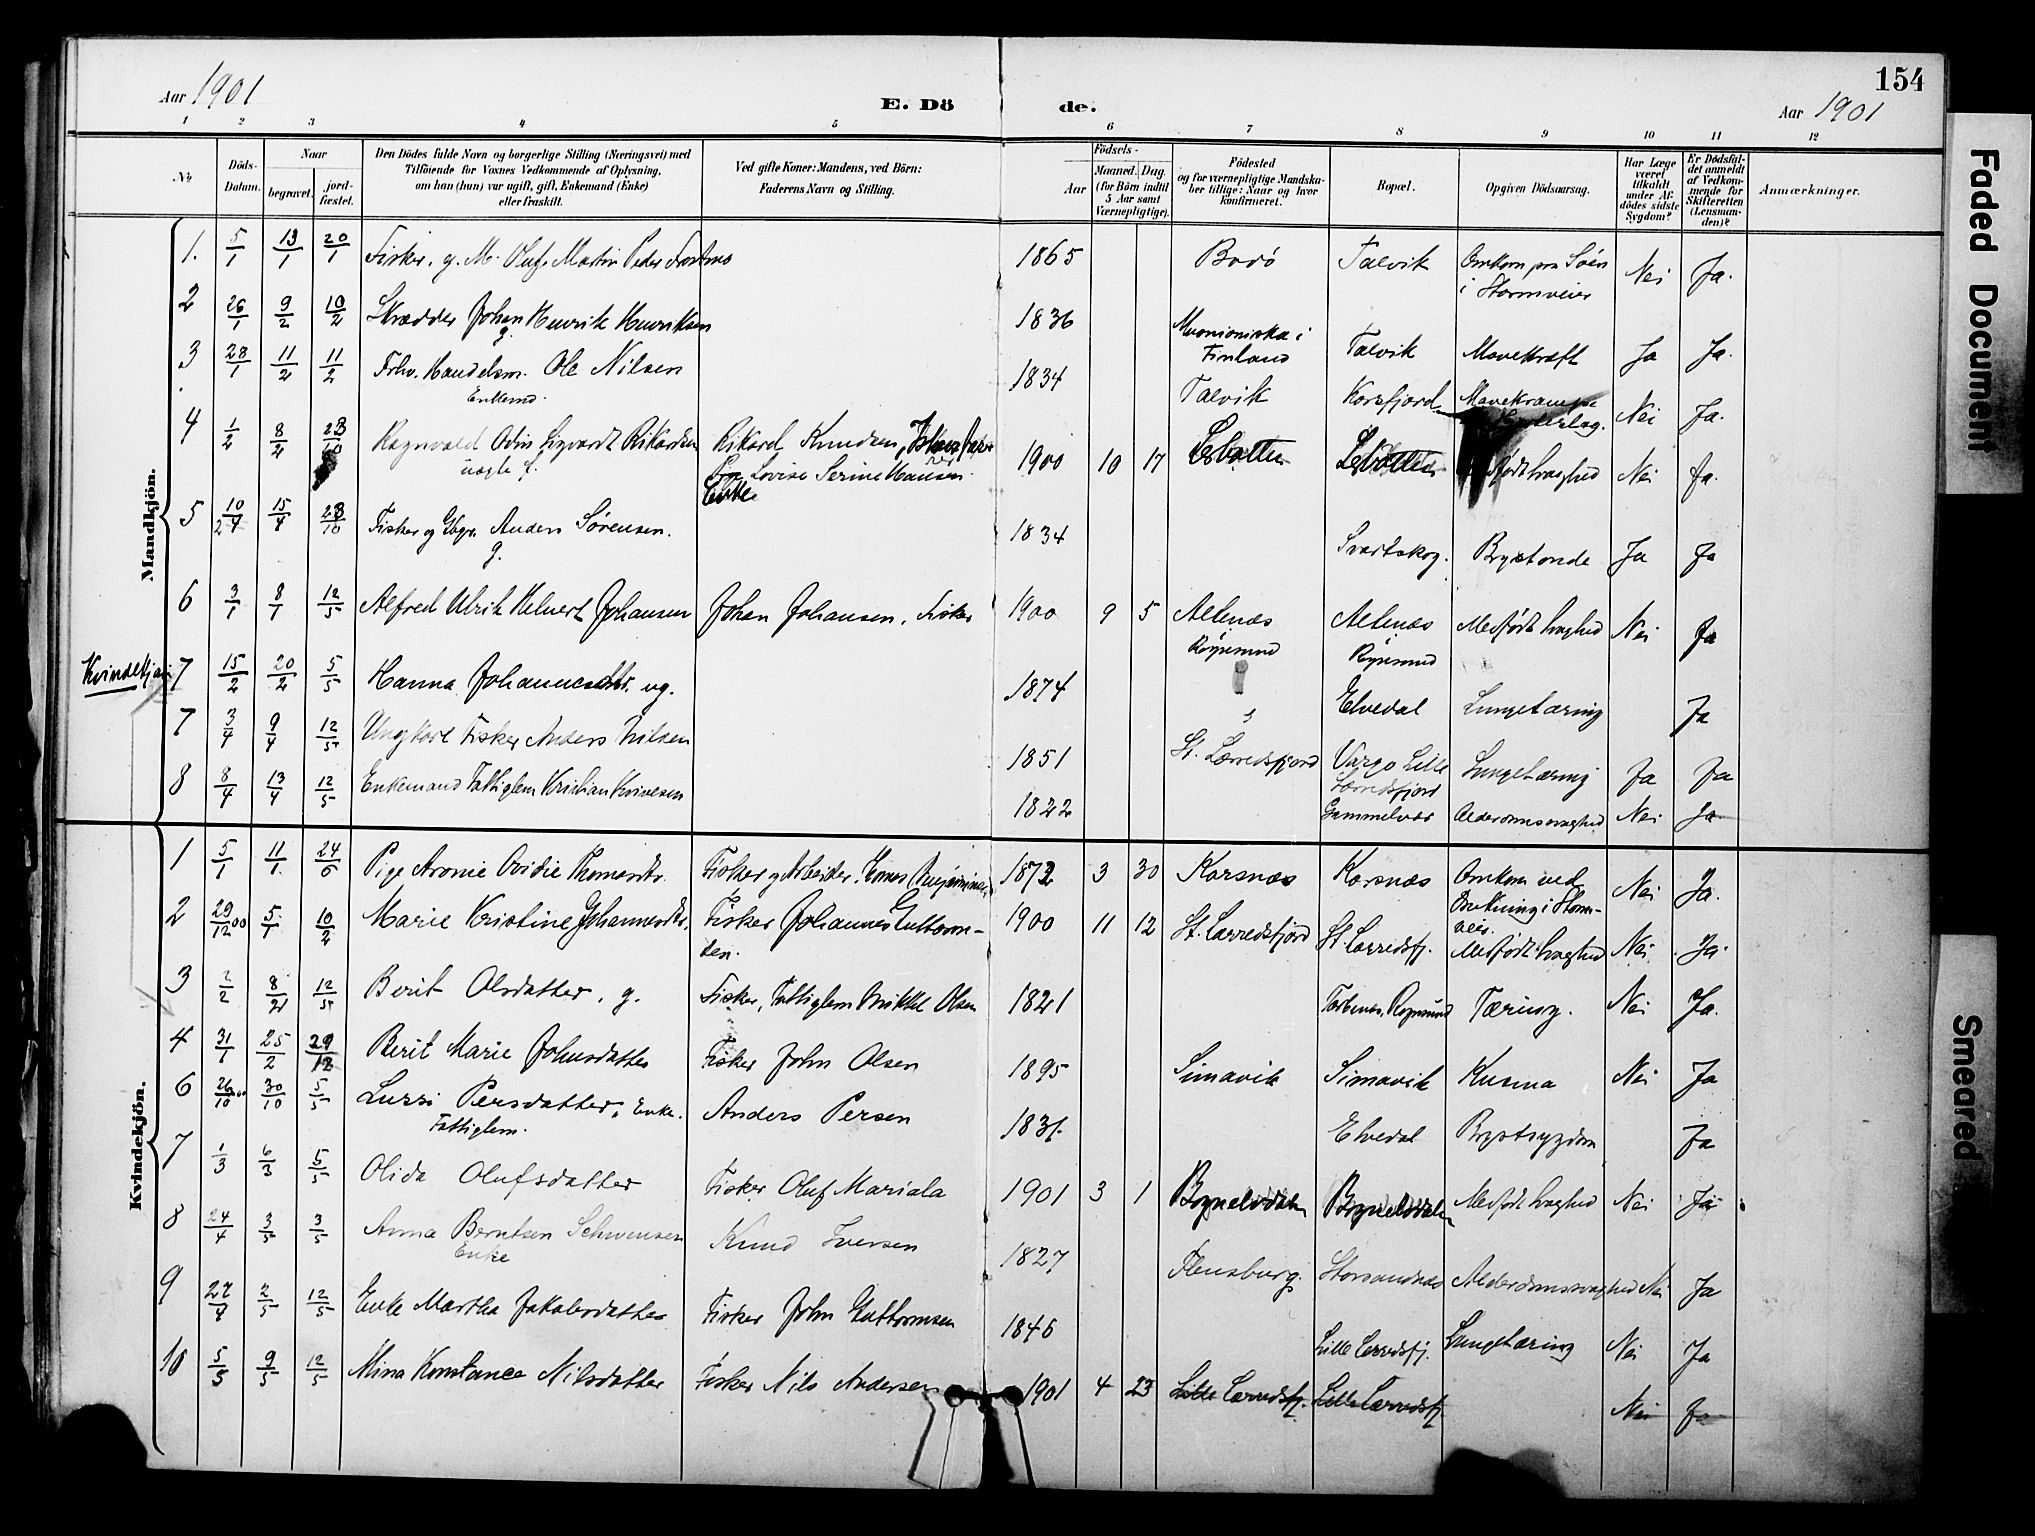 154
Aar 1901
E. Dö de.
Aar 1901
1 2 3 4 5 6 7 8 9 10 11 12
No
Döds-Datum.
Naar
begravet.
jord-fæstet.
Den Dödes fulde Navn og borgerlige Stilling (Næringsvei) med
Tilföiende for Voxnes Vedkommende af Oplysning,
om han (hun) var ugift, gift, Enkemand (Enke)
eller fraskilt.
Ved gifte Koner: Mandens, ved Börn:
Faderens Navn og Stilling.
Födsels-
Aar
Maaned. Dag.
(for Börn indtil
5 Aar samt
Værnepligtige).
Födested
og for værnepligtige Mandska-
ber tillige: Naar og hvor
konfirmeret.
Bopæl.
Opgiven Dödsaarsag.
Har Læge
været
tilkaldt
under Af-
dödes sidste
Sygdom?
Er Dödsfal-
det anmeldt
af Vedkom-
mende for
Skifteretten
(Lensman-
den)?
Anmærkninger.
Mandkjön.
1. 5/1 13/1 20/1 Fisker, g. M. Oluf Martin Peder 1865 Talvik Omkom paa Søen i Stormveier Nei Ja.
2 26/1 9/2 10/2 Skrædder Johan Henrik Henriksen g. 1836 Muonioniska i Finland Talvik Mavekræft Ja Ja.
3 28/1 11/2 11/2 Fhv. Handelsm. Ole Nilsen Enkemd. 1834 Talvik Korsfjord Nei Ja.
4 1/2 8/2 Ragnvald Odin Sigvardt Rikardsen uægte f. Rikard Knudsen, Lovise Serine Hansen Enke 1900 10 17 Lesbotten Lesbotten Nei Ja.
5 15/4 Fisker og Gbgr. Anders Sørensen. g. 1834 Svartskog. Brystonde Ja Ja
6 3/1 8/1 12/5 Alfred Ulrik Helmert Johansen Johan Johansen, Fisker 1900 9 5 Altenæs Røgnsund Altenæs Røgnsund Medfødt svaghed Nei Ja
Kvindekjøn 7 15/2 20/2 5/5 Hanna Johannesdtr. ug. 1874 Elvedal Lungetæring Ja
7 3/4 9/4 12/5 Ungkarl Fisker Anders Nilsen 1851 St. Lærredsfjord Vargo Lille Lærredsfjord Lungetæring Ja Ja
8 8/4 13/4 12/5 Enkemand Fattiglem Kristian Iversen 1822 Gammelvær Alderdomssvaghed Nei Ja
Kvindekjön.
1 5/1 11/1. 24/6 Pige Aronie Ovidie Thomasdtr. Fisker og Arbeider 1872 3 30 Korsnæs Korsnæs Omkom ved i Stormveir. Nei Ja.
2 29/12 00 5/1 10/2 Marie Kristine Johannesdtr. Fisker Johannes Guttormsen. 1900 11 12 St. Lærredsfjord St. Lærredsfj. Medfødt svaghed Nei Ja.
3 2/2 8/2 12/5 Berit Olsdatter, g. Fisker, Fattiglem Mikkel Olsen 1821 Røgnsund Tæring. Nei Ja.
4 31/1 25/2 29/12 Berit Marie Johnsdatter Fisker John Olsen 1895 Simavik Simavik Kusma Nei Ja
6 26/10 00 30/10 5/5 Luzzi Persdatter, Enke. Fattiglem. Anders Persen 1831. Elvedal Brystsygdom Ja
7 1/3 6/3 5/5 Olida Olufsdatter Fisker Oluf Mariala 1901 3 1 Bognelvdalen Bognelvdalen Medfødt svaghed Nei Ja
8 24/4 3/5 3/5 Anna Berntsen Schwensen Enke Knud Iversen 1827 Flensburg. Storsandnæs Alderdomssvaghed Nei Ja
9 27/4 2/5 12/5 Enke Martha Jakobsdatter Fisker John Guttormsen 1846 Lille Lerredsfj. Lungetæring Nei Ja
10 5/5 9/5 12/5 Mina Konstance Nilsdatter Fisker Nils Andersen 1901 4 23 Lille Lærredsfj. Lille Lærredsfj. Nei Ja
Faded Document
Smeared